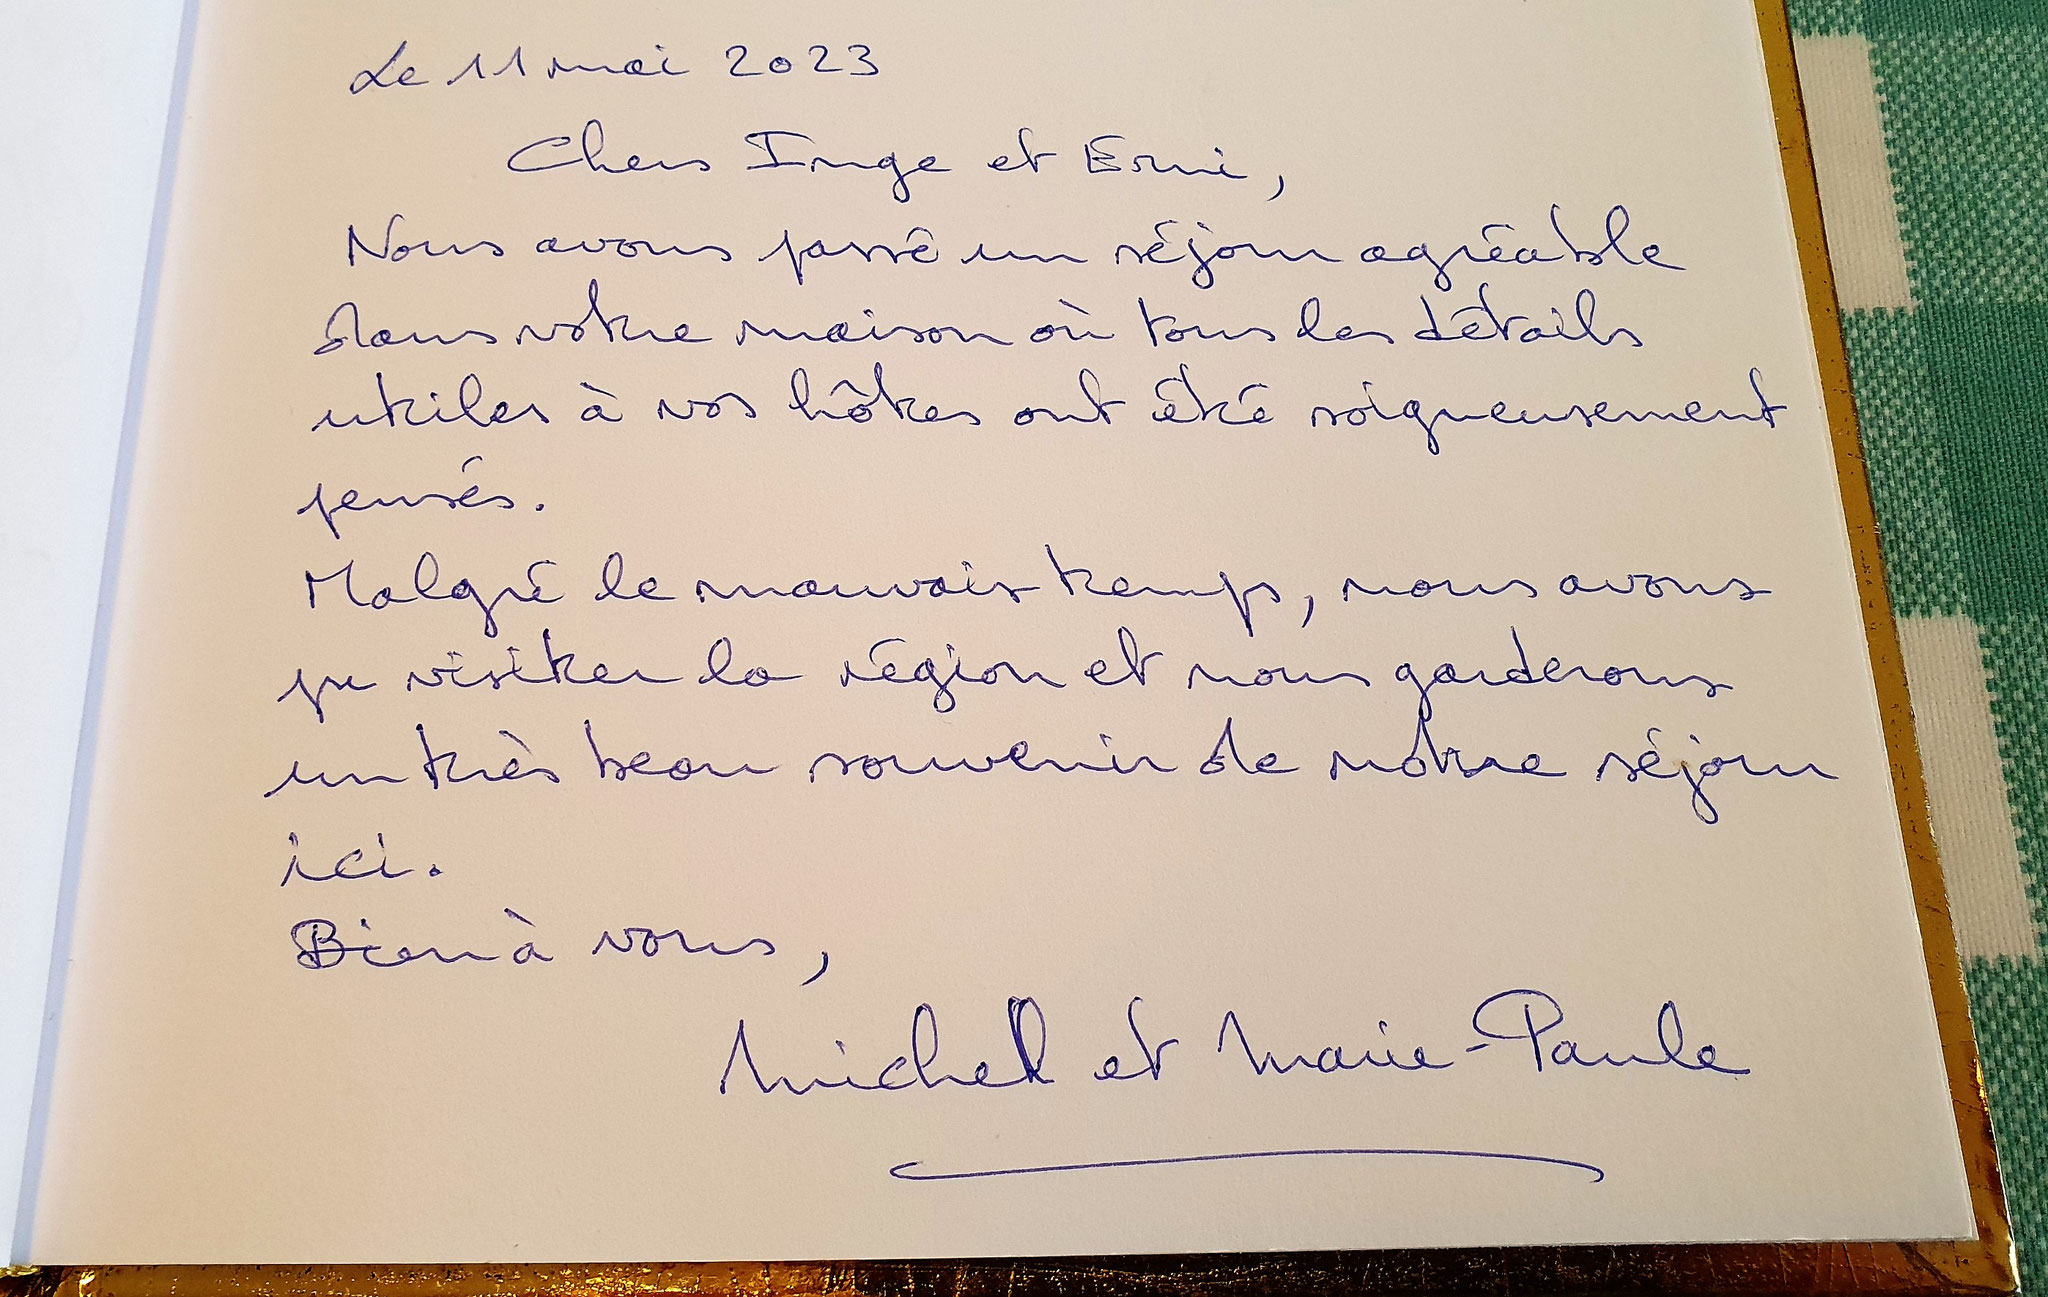 Le 11 mai 2023
Chers Inge et Erni,
Nous avons passé un séjour agréable
dans votre maison où tous les détails
utiles à vos hôtes ont été soigneusement
pensés.
Malgré le mauvais temps, nous avons
pu visiter la région et nous garderons
un très beau souvenir de notre séjour
ici.
Bien à vous,
Michel et Marie-Paule